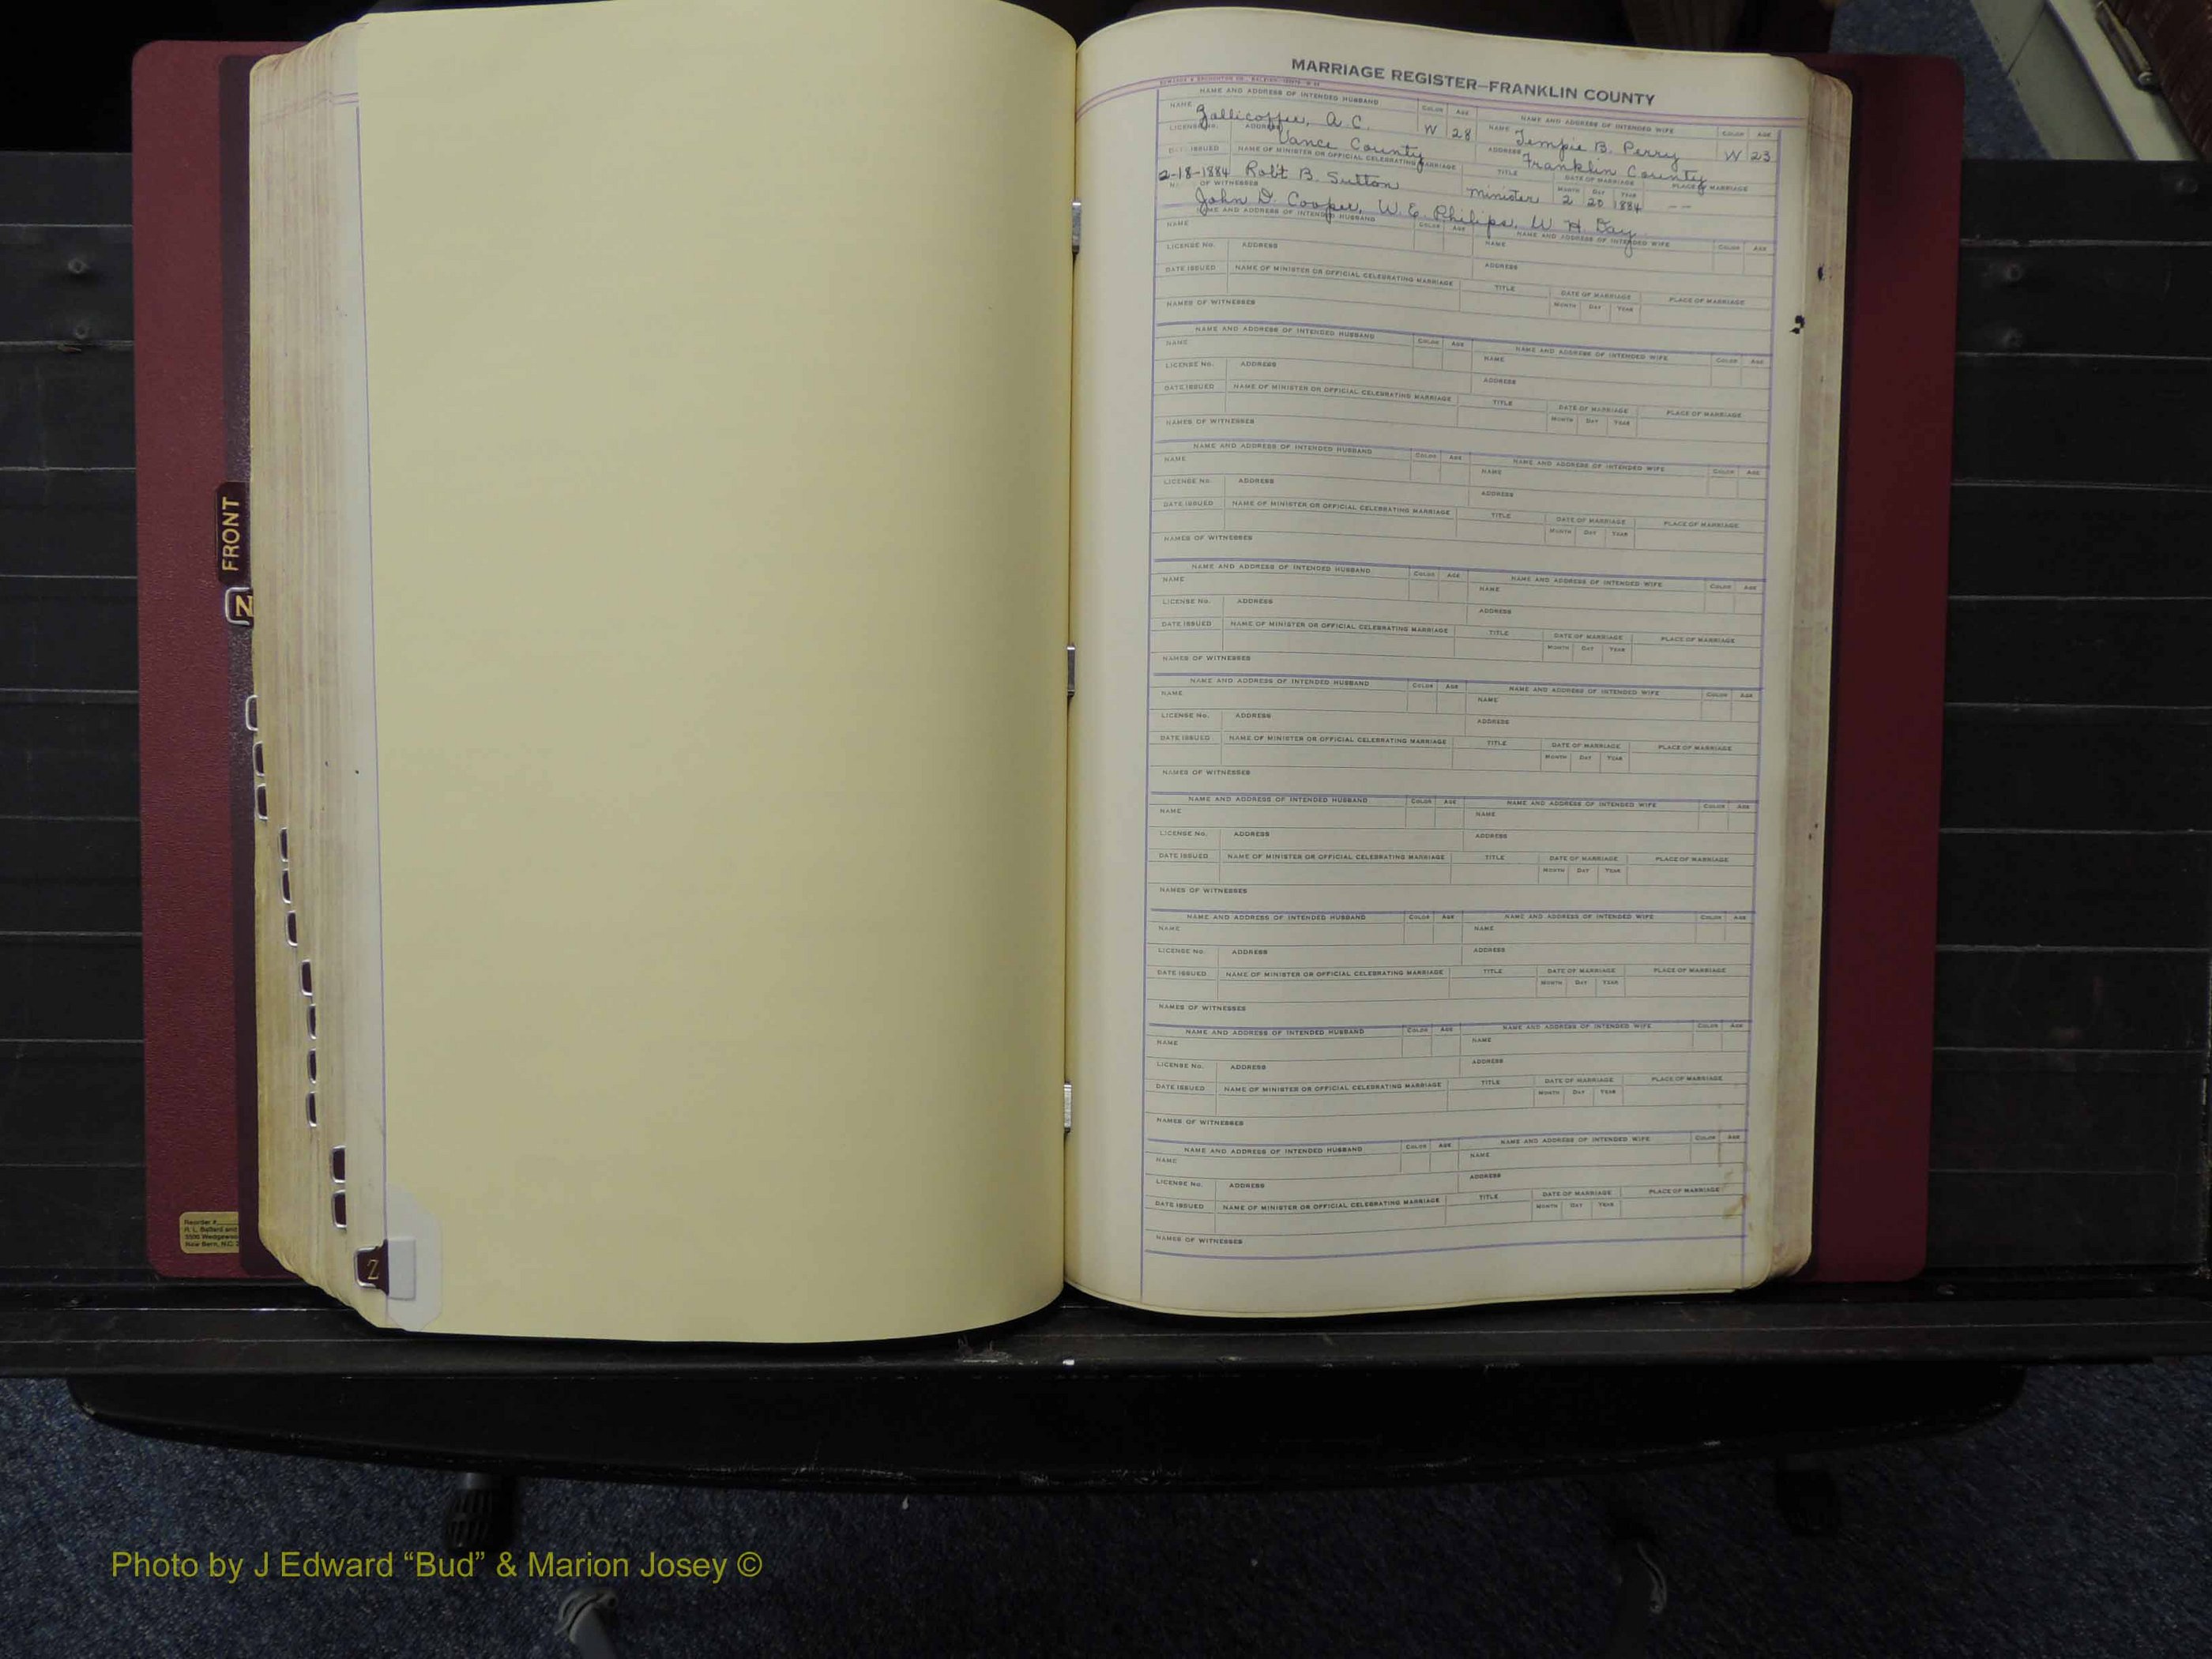 MARRIAGE REGISTER—FRANKLIN COUNTY
NAME AND ADDRESS OF INTENDED HUSBAND COLOR AGE NAME AND ADDRESS OF INTENDED WIFE COLOR AGE
NAME Zollicoffer, A. C. W 28 NAME Tempie B. Perry W 23
LICENSE No. ADDRESS Vance County ADDRESS Franklin County
DATE ISSUED NAME OF MINISTER OR OFFICIAL CELEBRATING MARRIAGE TITLE DATE OF MARRIAGE PLACE OF MARRIAGE
MONTH DAY YEAR
2-18-1884 Robt B. Sutton minister 2 20 1884 — —
OF WITNESSES
John D. Cooper, W. E. Philips, W. H. Day
NAME AND ADDRESS OF INTENDED HUSBAND COLOR AGE NAME AND ADDRESS OF INTENDED WIFE COLOR AGE
NAME NAME
LICENSE No. ADDRESS ADDRESS
DATE ISSUED NAME OF MINISTER OR OFFICIAL CELEBRATING MARRIAGE TITLE DATE OF MARRIAGE PLACE OF MARRIAGE
MONTH DAY YEAR
NAMES OF WITNESSES
NAME AND ADDRESS OF INTENDED HUSBAND COLOR AGE NAME AND ADDRESS OF INTENDED WIFE COLOR AGE
NAME NAME
LICENSE No. ADDRESS ADDRESS
DATE ISSUED NAME OF MINISTER OR OFFICIAL CELEBRATING MARRIAGE TITLE DATE OF MARRIAGE PLACE OF MARRIAGE
MONTH DAY YEAR
NAMES OF WITNESSES
NAME AND ADDRESS OF INTENDED HUSBAND COLOR AGE NAME AND ADDRESS OF INTENDED WIFE COLOR AGE
NAME NAME
LICENSE No. ADDRESS ADDRESS
DATE ISSUED NAME OF MINISTER OR OFFICIAL CELEBRATING MARRIAGE TITLE DATE OF MARRIAGE PLACE OF MARRIAGE
MONTH DAY YEAR
NAMES OF WITNESSES
NAME AND ADDRESS OF INTENDED HUSBAND COLOR AGE NAME AND ADDRESS OF INTENDED WIFE COLOR AGE
NAME NAME
LICENSE No. ADDRESS ADDRESS
DATE ISSUED NAME OF MINISTER OR OFFICIAL CELEBRATING MARRIAGE TITLE DATE OF MARRIAGE PLACE OF MARRIAGE
MONTH DAY YEAR
NAMES OF WITNESSES
NAME AND ADDRESS OF INTENDED HUSBAND COLOR AGE NAME AND ADDRESS OF INTENDED WIFE COLOR AGE
NAME NAME
LICENSE No. ADDRESS ADDRESS
DATE ISSUED NAME OF MINISTER OR OFFICIAL CELEBRATING MARRIAGE TITLE DATE OF MARRIAGE PLACE OF MARRIAGE
MONTH DAY YEAR
NAMES OF WITNESSES
NAME AND ADDRESS OF INTENDED HUSBAND COLOR AGE NAME AND ADDRESS OF INTENDED WIFE COLOR AGE
NAME NAME
LICENSE No. ADDRESS ADDRESS
DATE ISSUED NAME OF MINISTER OR OFFICIAL CELEBRATING MARRIAGE TITLE DATE OF MARRIAGE PLACE OF MARRIAGE
MONTH DAY YEAR
NAMES OF WITNESSES
NAME AND ADDRESS OF INTENDED HUSBAND COLOR AGE NAME AND ADDRESS OF INTENDED WIFE COLOR AGE
NAME NAME
LICENSE No. ADDRESS ADDRESS
DATE ISSUED NAME OF MINISTER OR OFFICIAL CELEBRATING MARRIAGE TITLE DATE OF MARRIAGE PLACE OF MARRIAGE
MONTH DAY YEAR
NAMES OF WITNESSES
NAME AND ADDRESS OF INTENDED HUSBAND COLOR AGE NAME AND ADDRESS OF INTENDED WIFE COLOR AGE
NAME NAME
LICENSE No. ADDRESS ADDRESS
DATE ISSUED NAME OF MINISTER OR OFFICIAL CELEBRATING MARRIAGE TITLE DATE OF MARRIAGE PLACE OF MARRIAGE
MONTH DAY YEAR
NAMES OF WITNESSES
NAME AND ADDRESS OF INTENDED HUSBAND COLOR AGE NAME AND ADDRESS OF INTENDED WIFE COLOR AGE
NAME NAME
LICENSE No. ADDRESS ADDRESS
DATE ISSUED NAME OF MINISTER OR OFFICIAL CELEBRATING MARRIAGE TITLE DATE OF MARRIAGE PLACE OF MARRIAGE
MONTH DAY YEAR
NAMES OF WITNESSES
FRONT
N
Reorder #
New Bern, N.C.
Z
Photo by J Edward “Bud” & Marion Josey ©